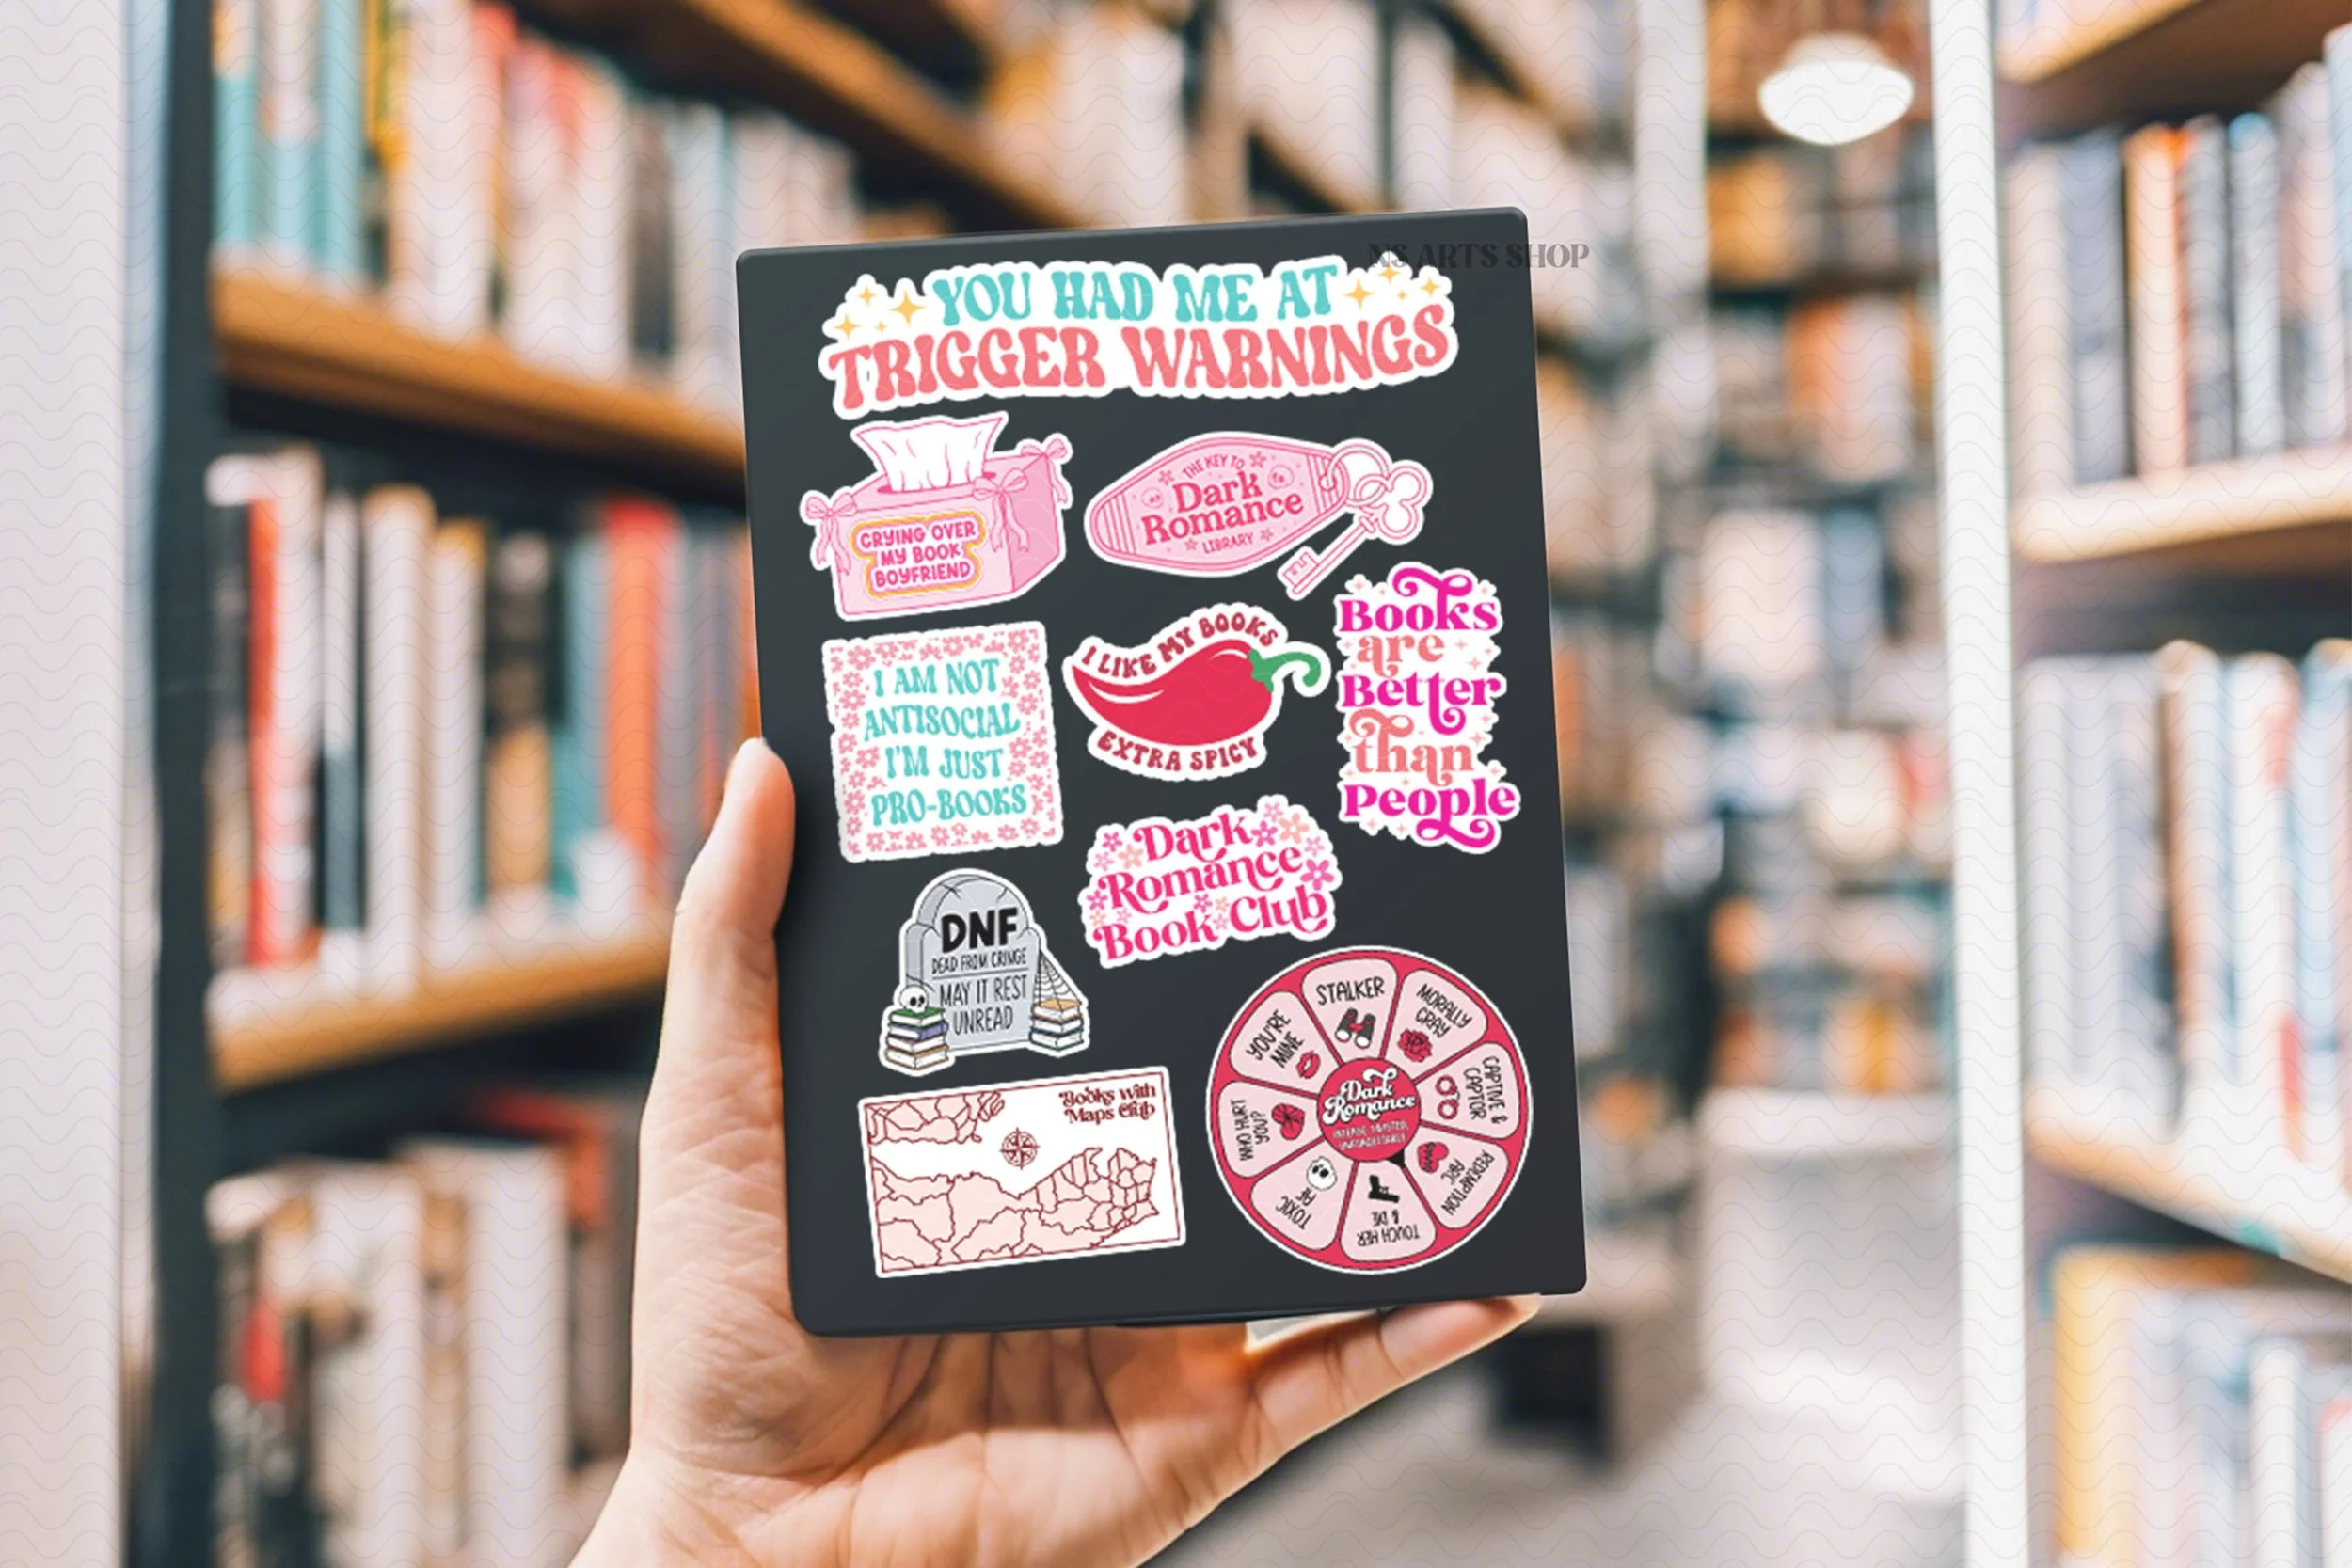 XS ARTS SHOP
YOU HAD ME AT
TRIGGER WARNINGS
CRYING OVER
MY BOOK
BOYFRIEND
THE KEY TO
Dark
Romance
LIBRARY
I AM NOT
ANTISOCIAL
I'M JUST
PRO-BOOKS
I LIKE MY BOOKS
EXTRA SPICY
Books
are
Better
than
People
Dark
Romance
Book Club
DNF
DEAD FROM CRINGE
MAY IT REST
UNREAD
Books with
Maps Club
STALKER
MORALLY
GRAY
CAPTIVE &
CAPTOR
REDEMPTION
ARC
TOUCH HER
& DIE
TOXIC
AF
WHO HURT
YOU?
YOU'RE
MINE
Dark
Romance